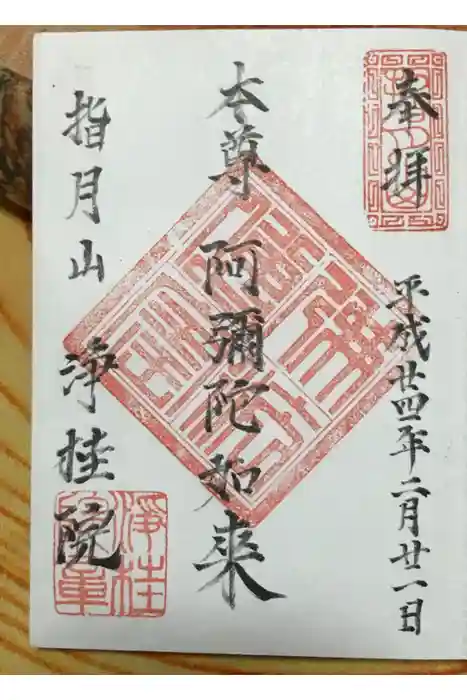 奉拝
平成廿四年二月廿一日
本尊 阿彌陀如来
指月山 浄桂院
淨桂
院章